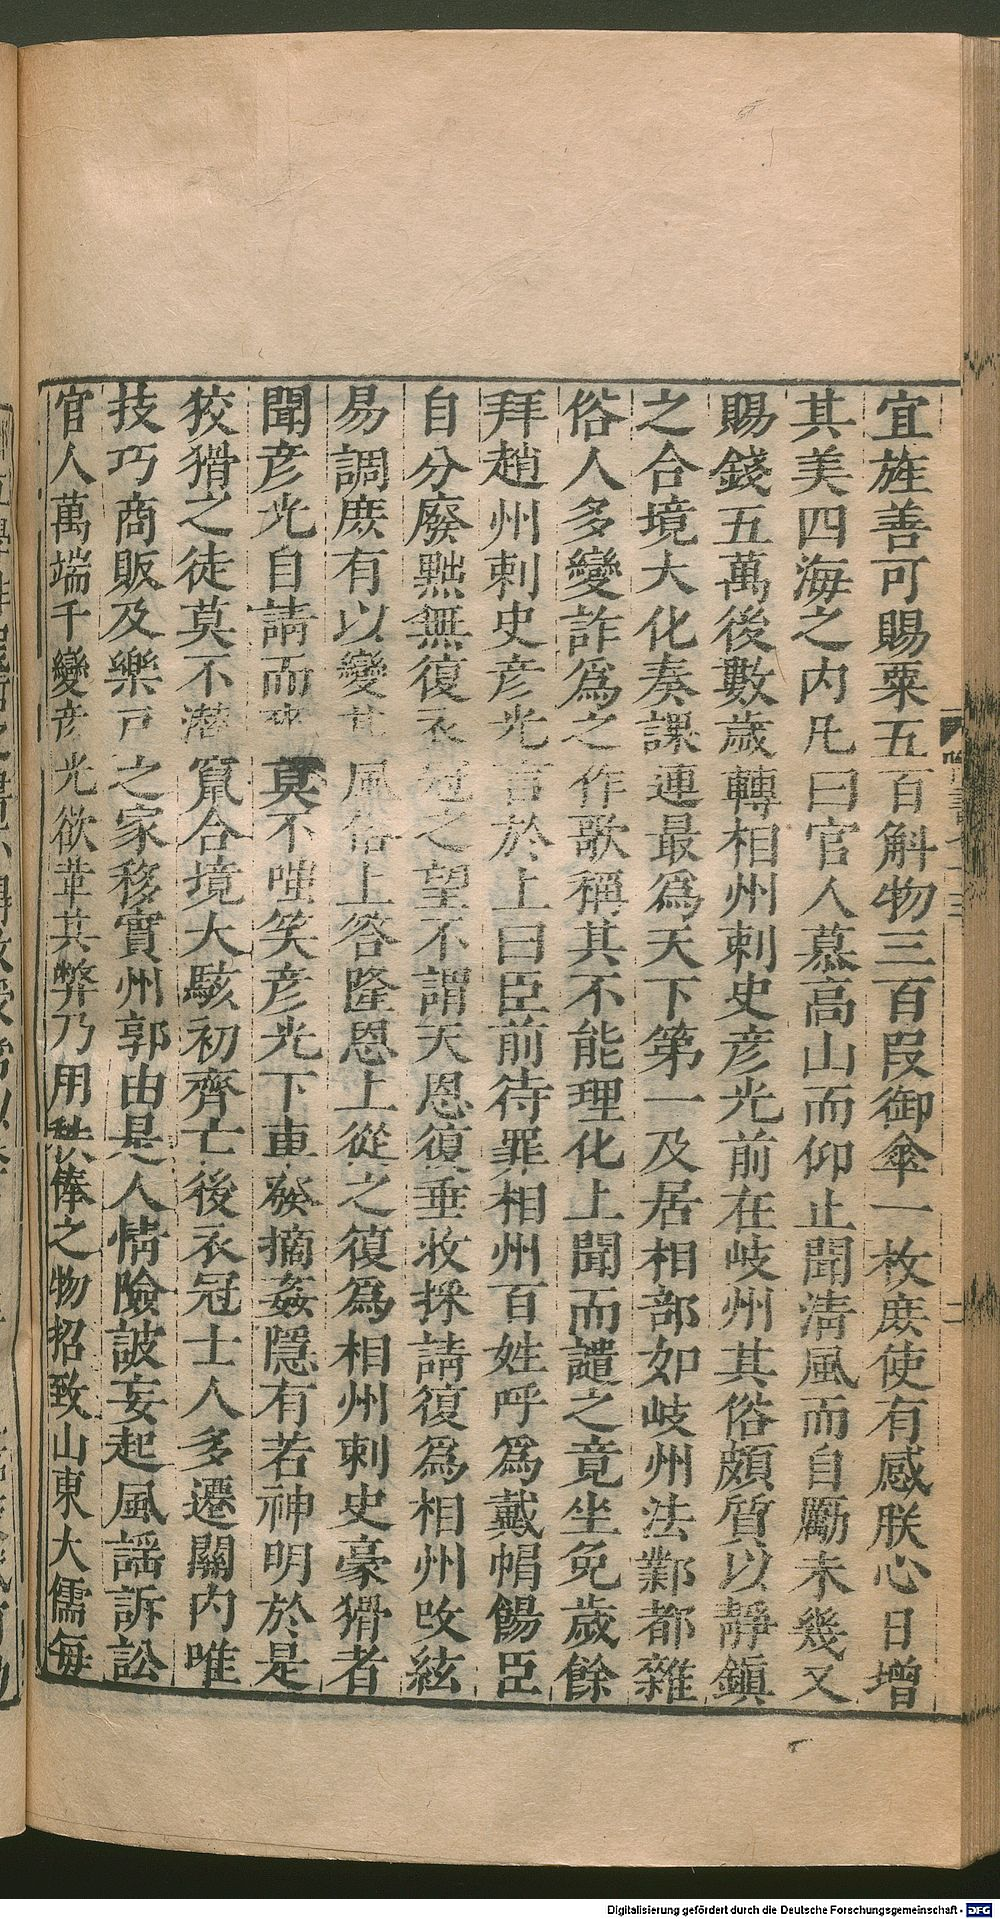 宜旌善可賜粟五百斛物三百叚御傘一枚庶使有感朕心日增
其美四海之内凡曰官人慕高山而仰止聞清風而自勵未幾又
賜錢五萬後數歲轉相州刺史彦光前在岐州其俗頗質以靜鎮
之合境大化奏課連最爲天下第一及居相部如岐州法鄴都雜
俗人多變詐爲之作歌稱其不能理化上聞而譴之竟坐免歲餘
拜趙州刺史彦光言於上曰臣前待罪相州百姓呼爲戴帽餳臣
自分廢黜無復衣冠之望不謂天恩復垂收採請復爲相州改絃
易調庶有以變其風俗上荅隆恩上從之復爲相州刺史豪猾者
聞彦光自請而來莫不嗤笑彦光下車發摘姦隱有若神明於是
狡猾之徒莫不潛竄合境大駭初齊亡後衣冠士人多遷關内唯
技巧商販及樂戸之家移實州郭由是人情險詖妄起風謡訴訟
官人萬端千變彦光欲革其弊乃用秩俸之物招致山東大儒每
二
Digitalisierung gefördert durch die Deutsche Forschungsgemeinschaft - DFG